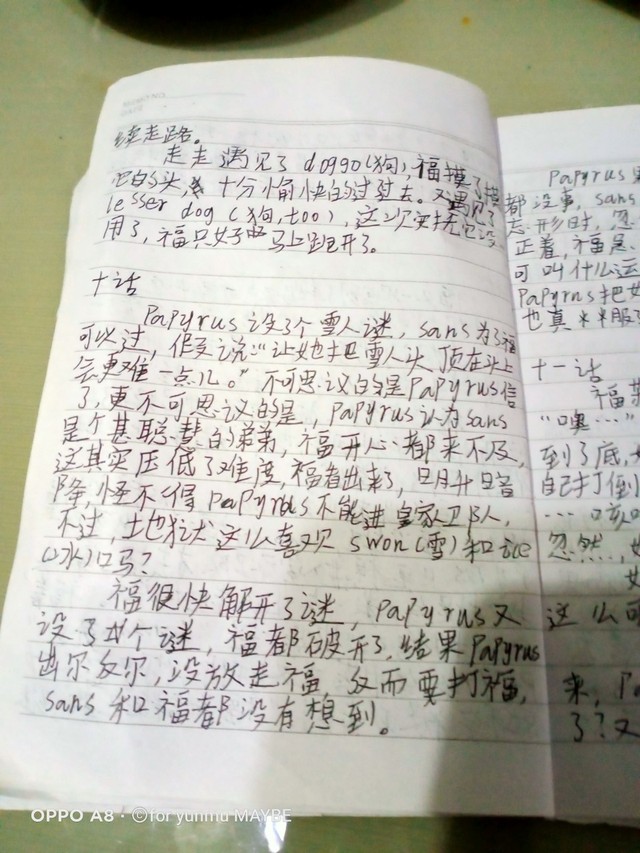 续走路。
走走遇见了doggo(狗),福摸了摸
它的头,十分愉快的过去。又遇见了
lesser dog(狗,too),这次安抚它没
用了,福只好马上跑开了。
十话
Papyrus设了个雪人谜,sans为了福
可以过,假意说:“让她把雪人头顶在头上
会更难一点儿。”不可思议的是Papyrus信
了,更不可思议的是,Papyrus认为sans
是个甚聪慧的弟弟,福开心都来不及,
这其实压低了难度,福看出来了,明升暗
降,怪不得Papyrus不能进皇家卫队,
不过,他犹犬这么喜欢swon(雪)和ice
(冰)吗?
福很快解开了谜,Papyrus又
设了个谜,福都破开了,结果Papyrus
出尔反尔,没放走福,反而要打福,
sans和福都没有想到。
Papyrus
都没事,sans
志形时,忽
正着,福是
可叫什么运
Papyrus把女
也真××服了
十一话
福
“噗…”
到了底,
自己打倒
…咳
忽然,
女
这么可
来,Pa
了?又
OPPO A8 · ©for yunmu MAYBE